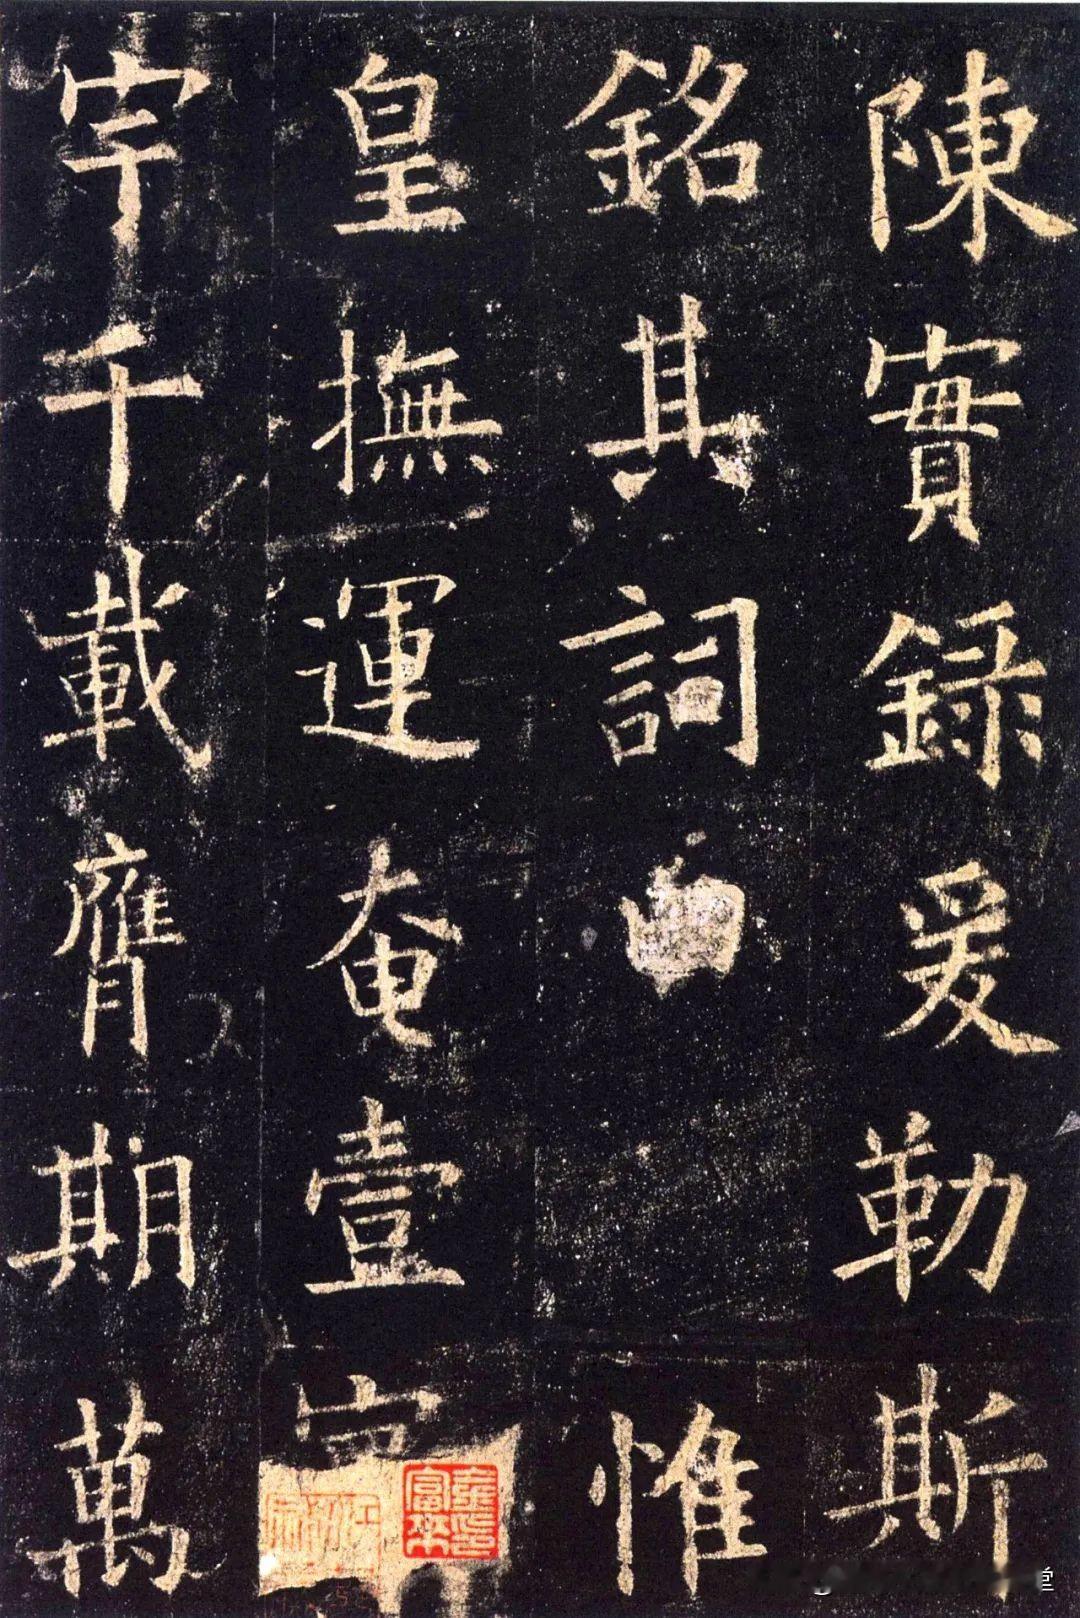 陳實錄爰勒斯
銘其詞惟
皇撫運奄壹
宇千載膺期萬
堂